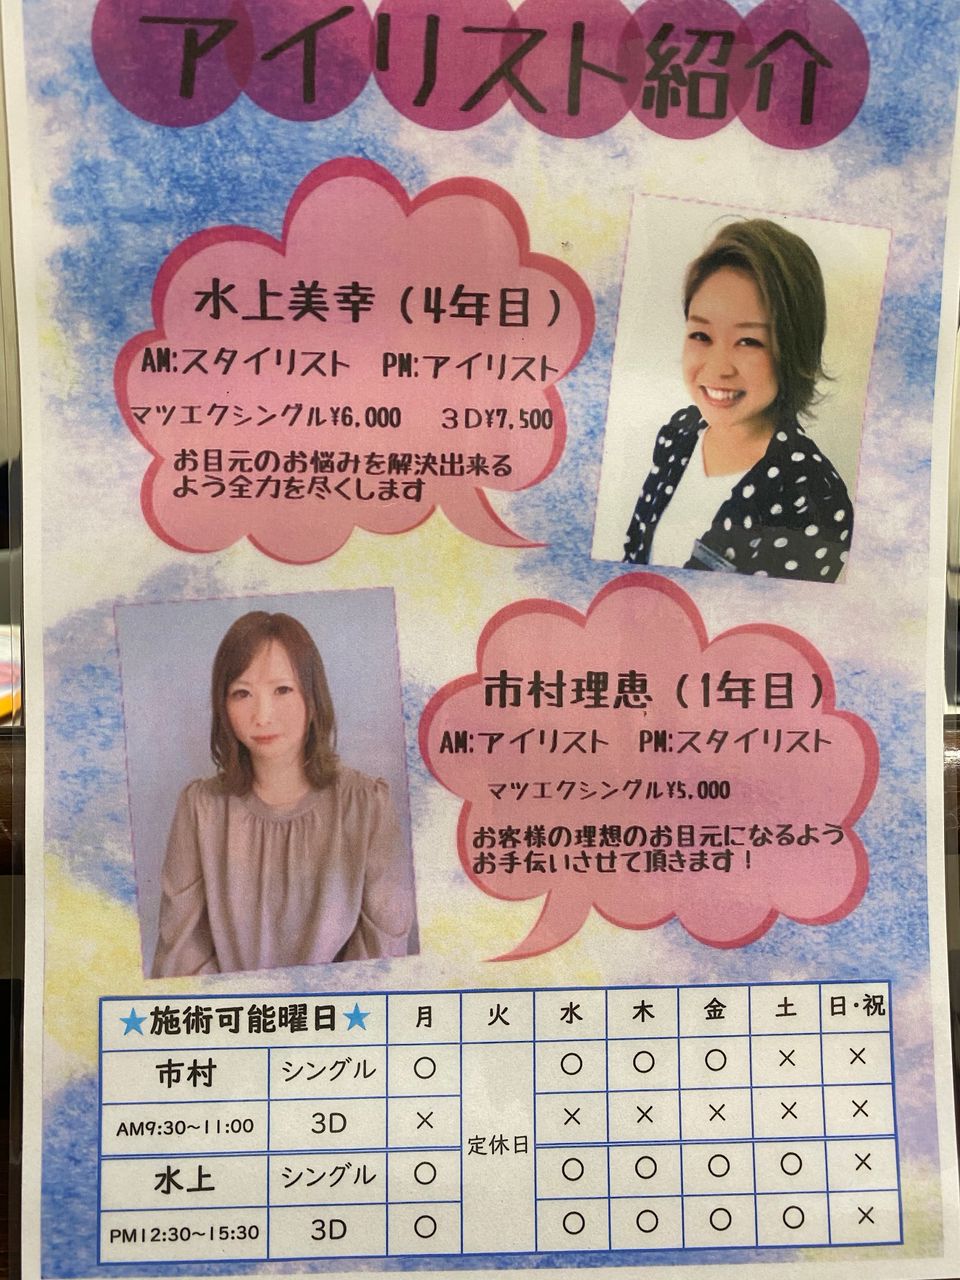 アイリスト紹介
水上美幸(4年目)
AM:スタイリスト PM:アイリスト
マツエクシングル¥6,000 3D¥7,500
お目元のお悩みを解決出来る
よう全力を尽くします
市村理恵(1年目)
AM:アイリスト PM:スタイリスト
マツエクシングル¥5,000
お客様の理想のお目元になるよう
お手伝いさせて頂きます!
★施術可能曜日★ 月 火 水 木 金 土 日・祝
市村 シングル ○ ○ ○ ○ × ×
AM9:30~11:00 3D × × × × × ×
定休日
水上 シングル ○ ○ ○ ○ ○ ×
PM12:30~15:30 3D ○ ○ ○ ○ ○ ×